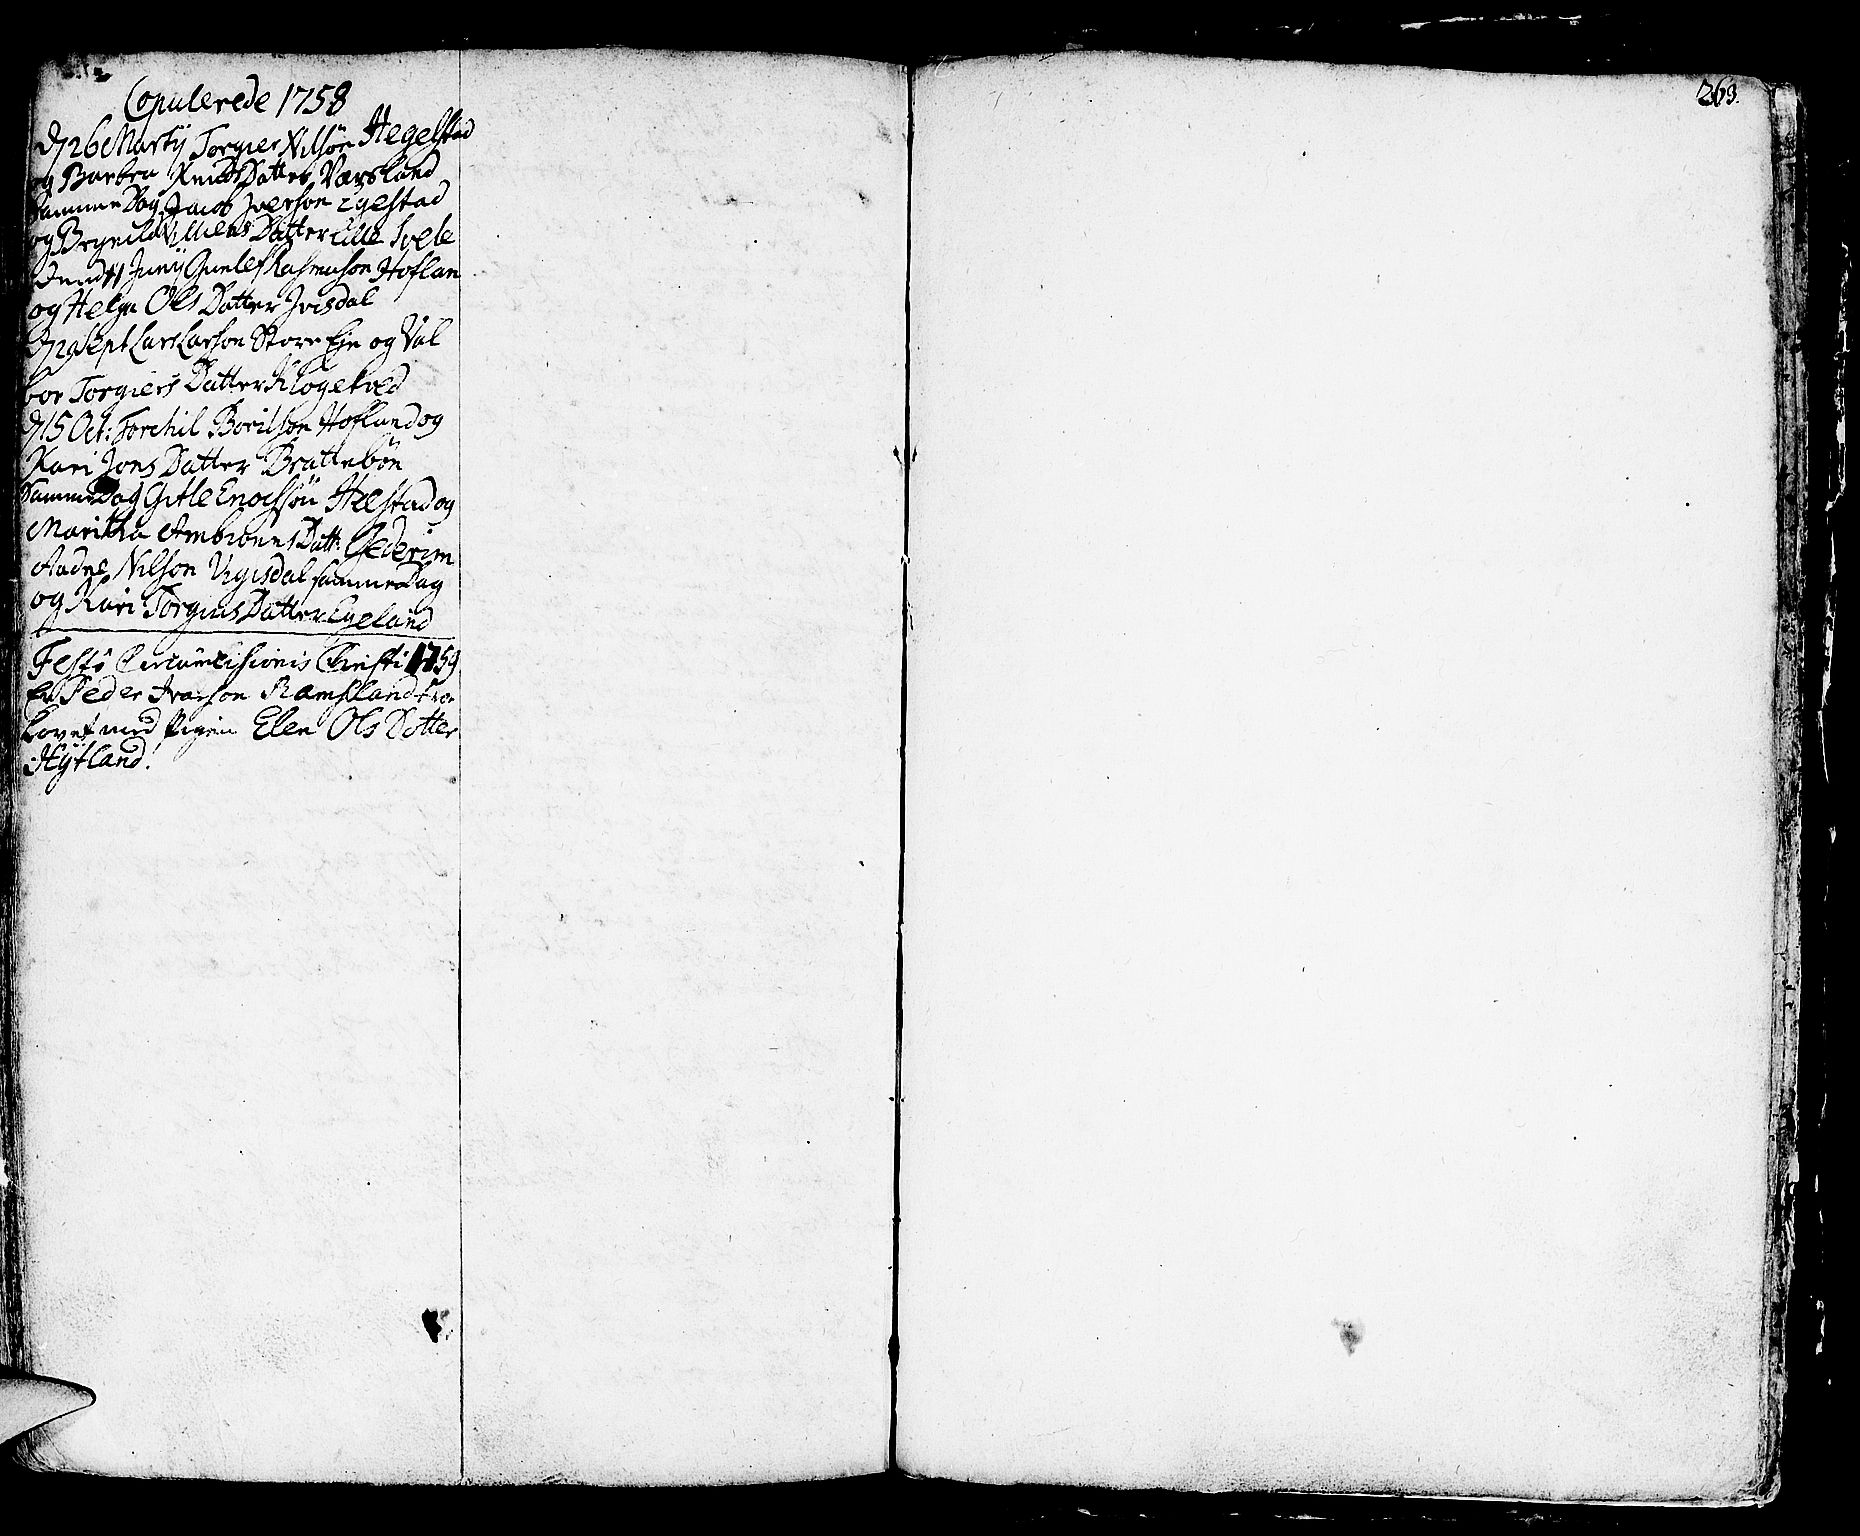 Copulerede 1758
d 26 Martij Torgier Nilsøn Hegelstad
og Barbra Knuds Datter Værsland
Samme Dag Jacob Iverson Egestad
og Brynild Villems Datter Lille Svele
Dend 11 Junij Gunlef Rasmuson Hoflan
og Helga Ols Datter Ivisdal
d 29 Sept Lars Larson Store Eje og Val
bor Torgiers Datter Klogetved
d 15 Oct: Torchil Borilson Hofland og
Kari Jons Datter Brattebøe
Samme Dag Gitle Enochsøn Helstad og
Maritha Ambiønns Datt: Gederim
Aadne Nilson Vigisdal samme Dag
og Kari Torgius Datter Egeland
Festo Circumcisionis Christi 1759
Er Peder Ivarson Ramsland troe
lovet med Pigen Elen Ols Dotter
Hytland.
263.